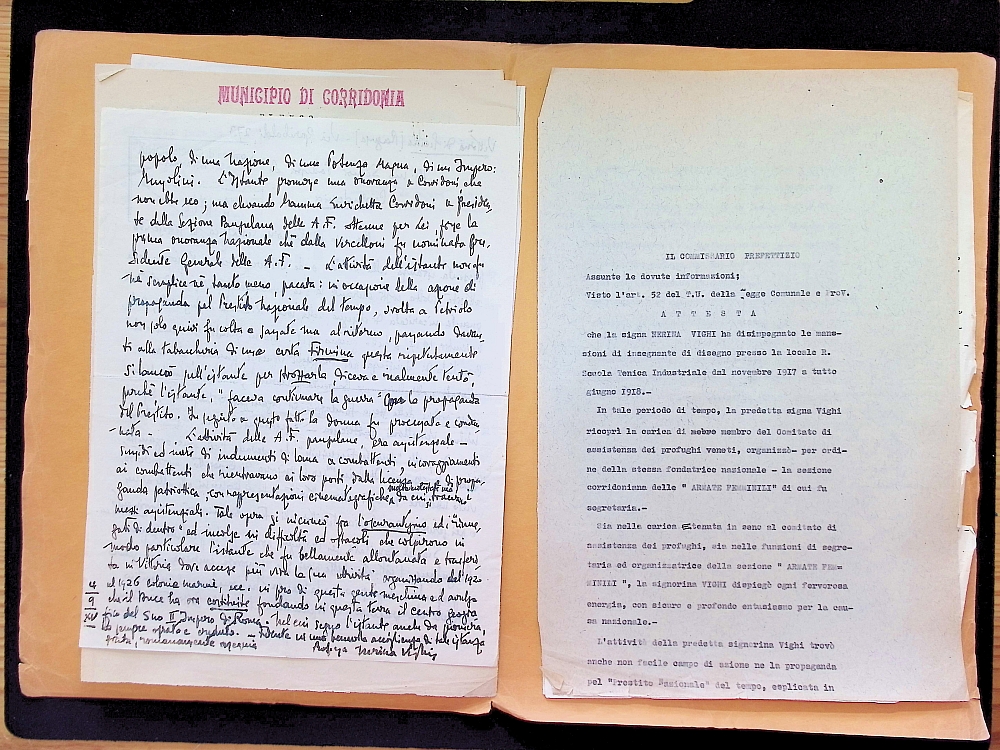 MUNICIPIO DI CORRIDONIA
popolo, di una Nazione, di una Potenza Magna, di un Impero:
L'istante promosse una onoranza a Corridoni, che
non ebbe eco; ma elevando Mamma Enrichetta Corridoni a Preside-
te della Sezione Pausulana delle A.F. ottenne per Lei, forse la
prima onoranza Nazionale chè dalla Vercelloni fu nominata Pre-
sidente Generale delle A.F. - L'attività dell'istante non fu
nè semplice nè, tanto meno, pacata: in occasione della azione di
propaganda pel Prestito Nazionale del tempo, svolta a Petriolo
non solo quivi fu colta a sassate ma al ritorno, passando davan-
ti alla tabaccheria di una certa Firmina questa ripetutamente
si lanciò sull'istante per strozzarla, diceva e realmente tentò,
perchè l'istante, "faceva continuare la guerra" con la propaganda
del Prestito. In seguito a questo fatto la donna fu processata e conda-
nata - L'attività delle A.F. pausulane, era assistenziale -
sussidi ed invio di indumenti di lana a combattenti, incoraggiamenti
ai combattenti che rientravano ai loro posti, dalla licenza e di propa-
ganda patriottica, con rappresentazioni cinematografiche da cui, traeva
mezzi assistenziali. Tale opera si
gati di dentro" ed incolse in difficoltà ed ostacoli che colpirono in
modo particolare l'istante che fu bellamente allontanata e trasferi
ta in Vittorio dove accese più viva la sua attività organizzando dal 1920
al 1926 colonie marine, ecc. in pro di questa gente meschina ed avulsa
che il Duce ha ora costituite fondando in questa terra il centro geogra
fico del Suo II° Impero di Roma -
ha sempre
romanamente ossequia
Nerina Vighi
4
9
XV
IL COMMISSARIO PREFETTIZIO
Assunte le dovute informazioni;
Visto l'art. 52 del T.U. della Legge Comunale e Prov.
A T T E S T A
che la signa NERINA VIGHI ha disimpegnato le mans-
sioni di insegnante di disegno presso la locale R.
Scuola Tenica Industriale dal novembre 1917 a tutto
giugno 1918.-
In tale periodo di tempo, la predetta signa Vighi
ricoprì la carica di mebro membro del Comitato di
assistenza dei profughi veneti, organizzò- per ordi-
ne della stessa fondatrice nazionale - la sezione
corridoniana delle " ARMATE FEMMINILI" di cui fu
segretaria.-
Sia nella carica tenuta in seno al comitato di
assistenza dei profughi, sia nelle funzioni di segre-
taria ed organizzatrice della sezione "ARMATE FEM-
MINILI ", la signorina VIGHI dispiegò ogni fervorosa
energia, con sicuro e profondo entusiasmo per la cau-
sa nazionale.-
L'attività della predetta signorina Vighi trovò
anche non facile campo di azione ne la propaganda
pel "Prestito Nazionale" del tempo, esplicata in